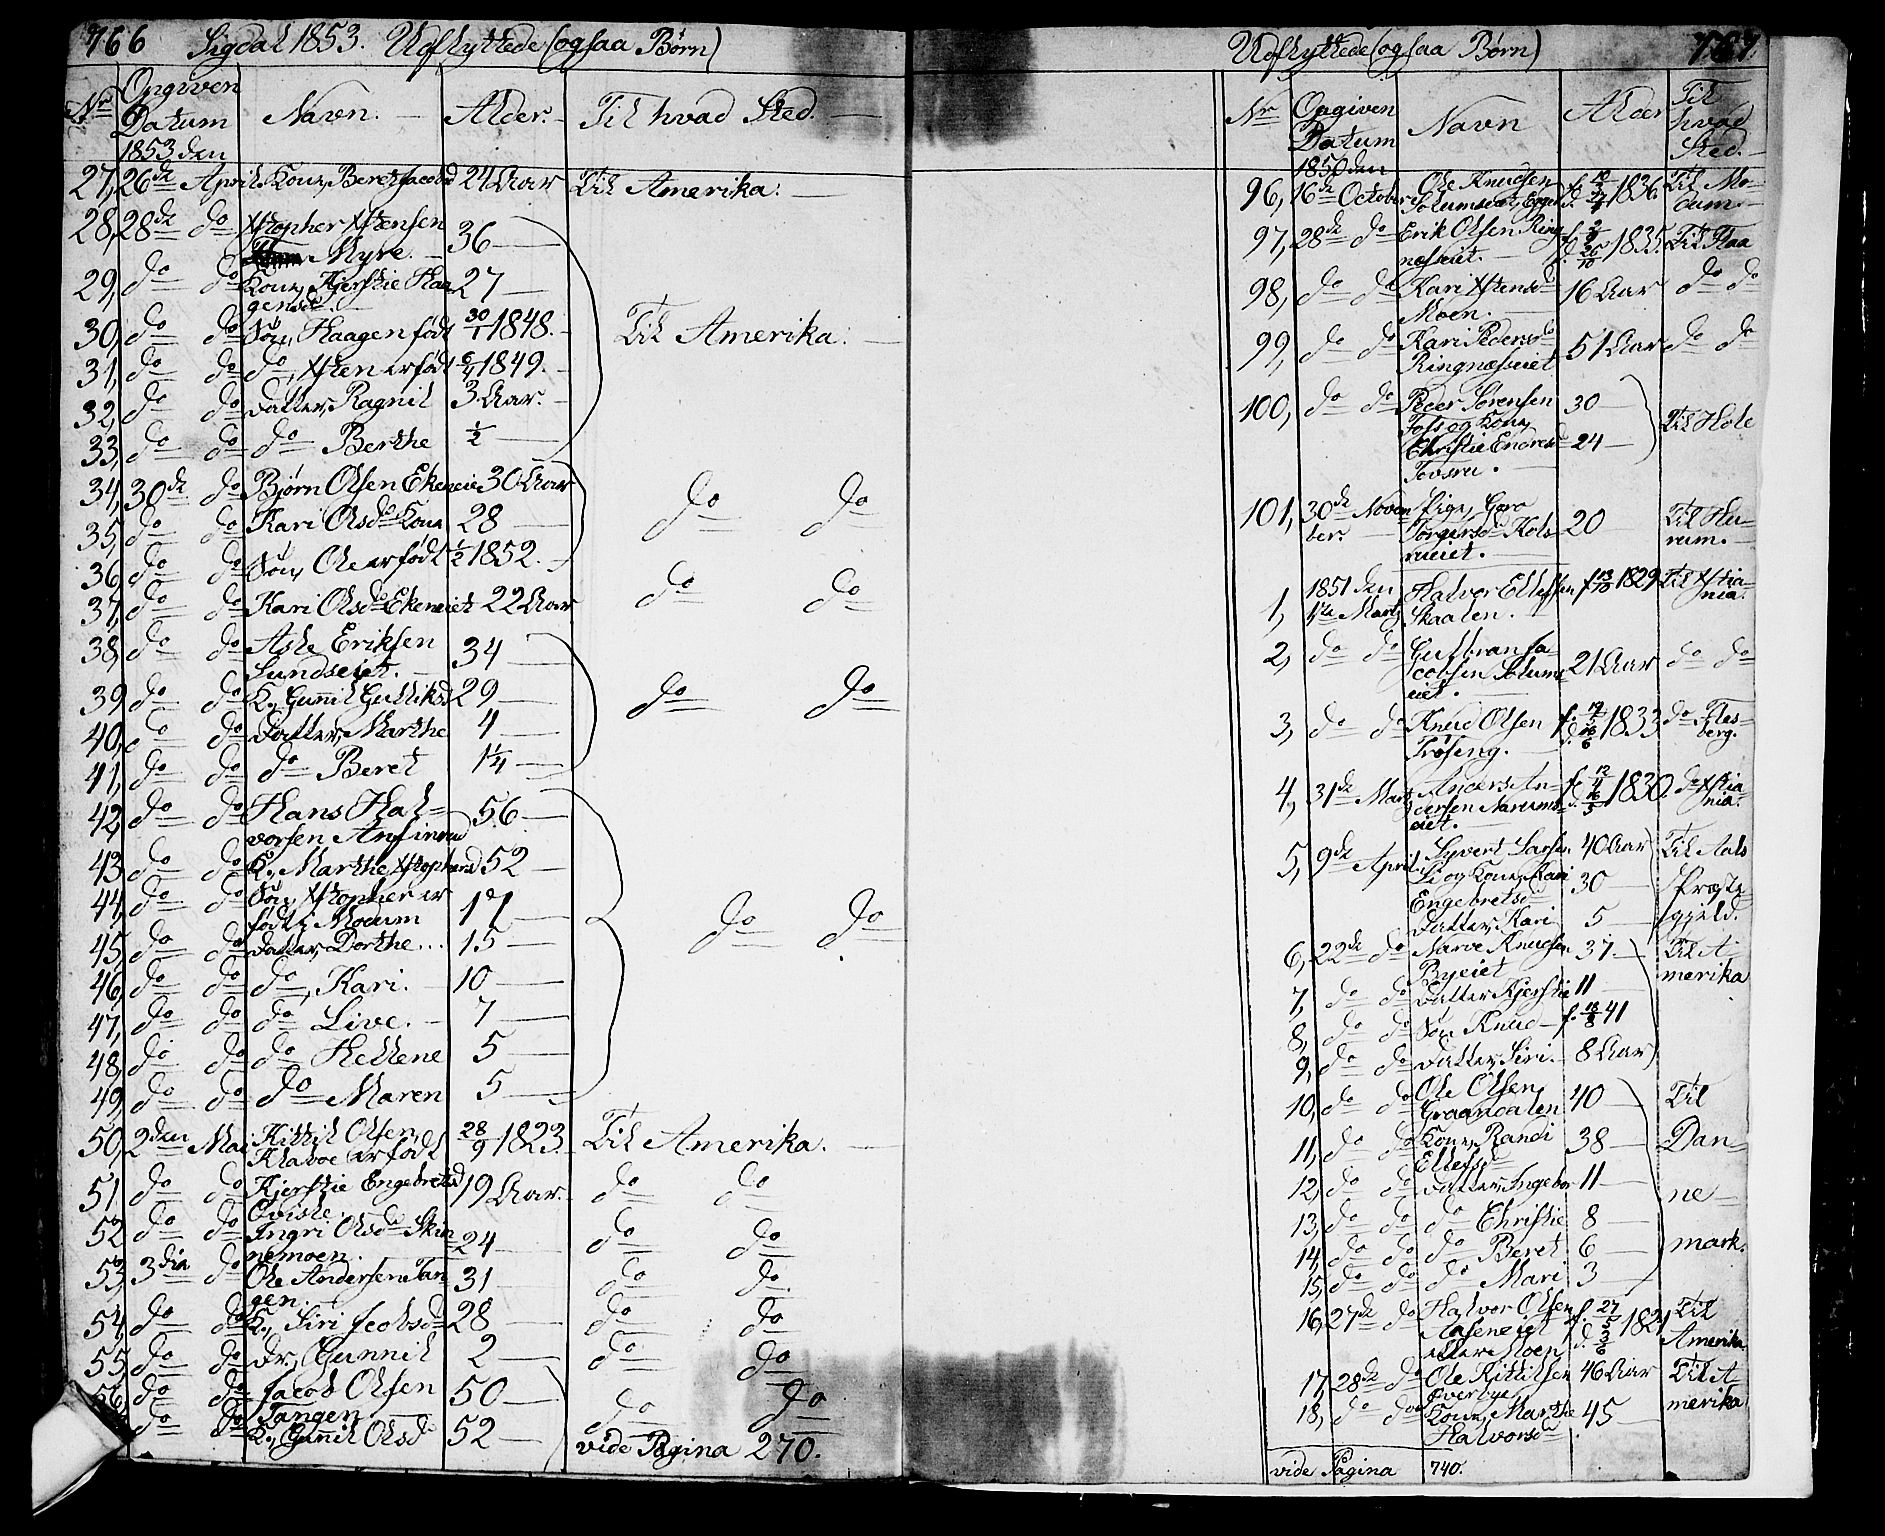 766 Sigdal 1853. Udflyttede (ogsaa Børn)
Nr Opgiven Datum 1853 den Navn. Alder. Til hvad Sted.
27, 26de April Kone, Beret Jacobsd 24 Aar Til Amerika.
28, 28de do Xstopher Xstensen 36
Myre.
29, do do Kone, Kjerstie Haa 27
gensd.
30, do do Søn, Haagen født 30/1 1848. Til Amerika.
31, do do do, Xsten er født 6/4 1849.
32, do do Datter, Ragnil 3 Aar.
33, do do do Berthe 1/2
34, 30de do Bjørn Olsen Ekeneie 30 Aar
35, do do Kari Olsdo Kone 28 do do
36, do do Søn, Ole er født 1/2 1852.
37, do do Kari Olsdo Ekeneiet 22 Aar do do
38, do do Asle Eriksen 34
Lundseiet.
39, do do K., Gunnil Gulliksd 29 do do
40, do do Datter, Marthe 4
41, do do do Beret 1 1/4
42, do do Hans Hal- 56
vorsen Anfinrud
43, do do K., Marthe Xstophersd 52
44, do do Søn, Xstopher er 17
født i Modum do do
45, do do Datter, Dorthe... 15
46, do do do, Kari. 10
47, do do do Live. 7
48, do do do Hellene 5
49, do do do Maren 5
50, 2den Mai Kittil Olsen, 28/9 1823. Til Amerika.
Klavoe er født
51, do do Kjerstie Engebretsd 19 Aar. do do
Qvisle.
52, do do Ingri Olsdo Skin 24 do do
nemoen.
53, 3die do Ole Andersen Tan- 31 do do
gen.
54, do do K., Siri Jcobsd 28 do do
55, do do Dr., Gunnil 2 do do
56, do do Jacob Olsen 50 do do
Tangen
do do K., Gunnil Olsdo 52
vide Pagina 270.
Udflyttede (ogsaa Børn) 767
Nr Opgiven Datum 1850 den Navn Alder Til hvad Sted.
96, 16de October Ole Knudsen 1836. Til Mo-
dum.
97, 28de do Erik Olsen Ring 1835. Til Flaa
næsseiet.
98, do do Kari Xstensd 16 Aar do do
Moen.
99, do do Kari Pedersd 51 Aar do do
Ringnæsseiet
100, do do Peder Sørensen 30
Foss og Kone, Til Hole
Christie Endresd 24
Tovsru.
101, 30de Novem Pige, Goro 20 Til Hu-
ber. Torgersd Kols rum.
rueiet.
1851 den
1, 1ste Marts Halvor Ellefsen f. 13/10 1829 Til Xstia-
Skaalen. nia.
2, do do Gulbran Ja- 21 Aar do do
cobsen Solums
eiet.
3, do do Knud Olsen 1833 do Fles-
Trøseng. berg.
4, 31de Marts Anders An- f. 12/4 d. 16/5 1830. do Xstia-
dersen Narums nia.
eiet.
5, 9de April Syvert Larsen 40 Aar Til Aals
Li og Kone, Kari 30 Præste
Engebretsd gjeld.
Datter, Kari 5
6, 22de do Narve Knudsen 37 Til A-
Byeiet merika
7, do do Datter Kjerstie 11
8, do do Søn Knud f. 18/8 41
9, do do Datter, Siri. 8 Aar
10, do do Ole Olsen 40 Til
Graandalen
11, do do Kone, Randi 38 Dan-
Ellefsd
12, do do Datter, Ingebor 11 ne-
13, do do do Christie 8
14, do do do Beret 6 mark.
15, do do do Mari 3
16, 27de do Halvor Olsen f. 27/5 d. 3/6 1821 Til
Aaseneiet Amerika
eller Moen
17, 28de do Ole Kittilsen 46 Aar Til A-
Overbye merika
18, do do Kone, Marthe 45
Halvorsd
vide Pagina 740.